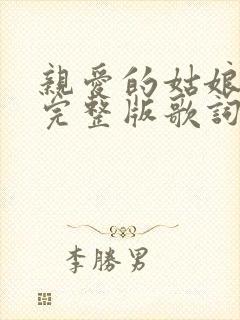 親愛的姑娘
完整版歌詞
李勝男